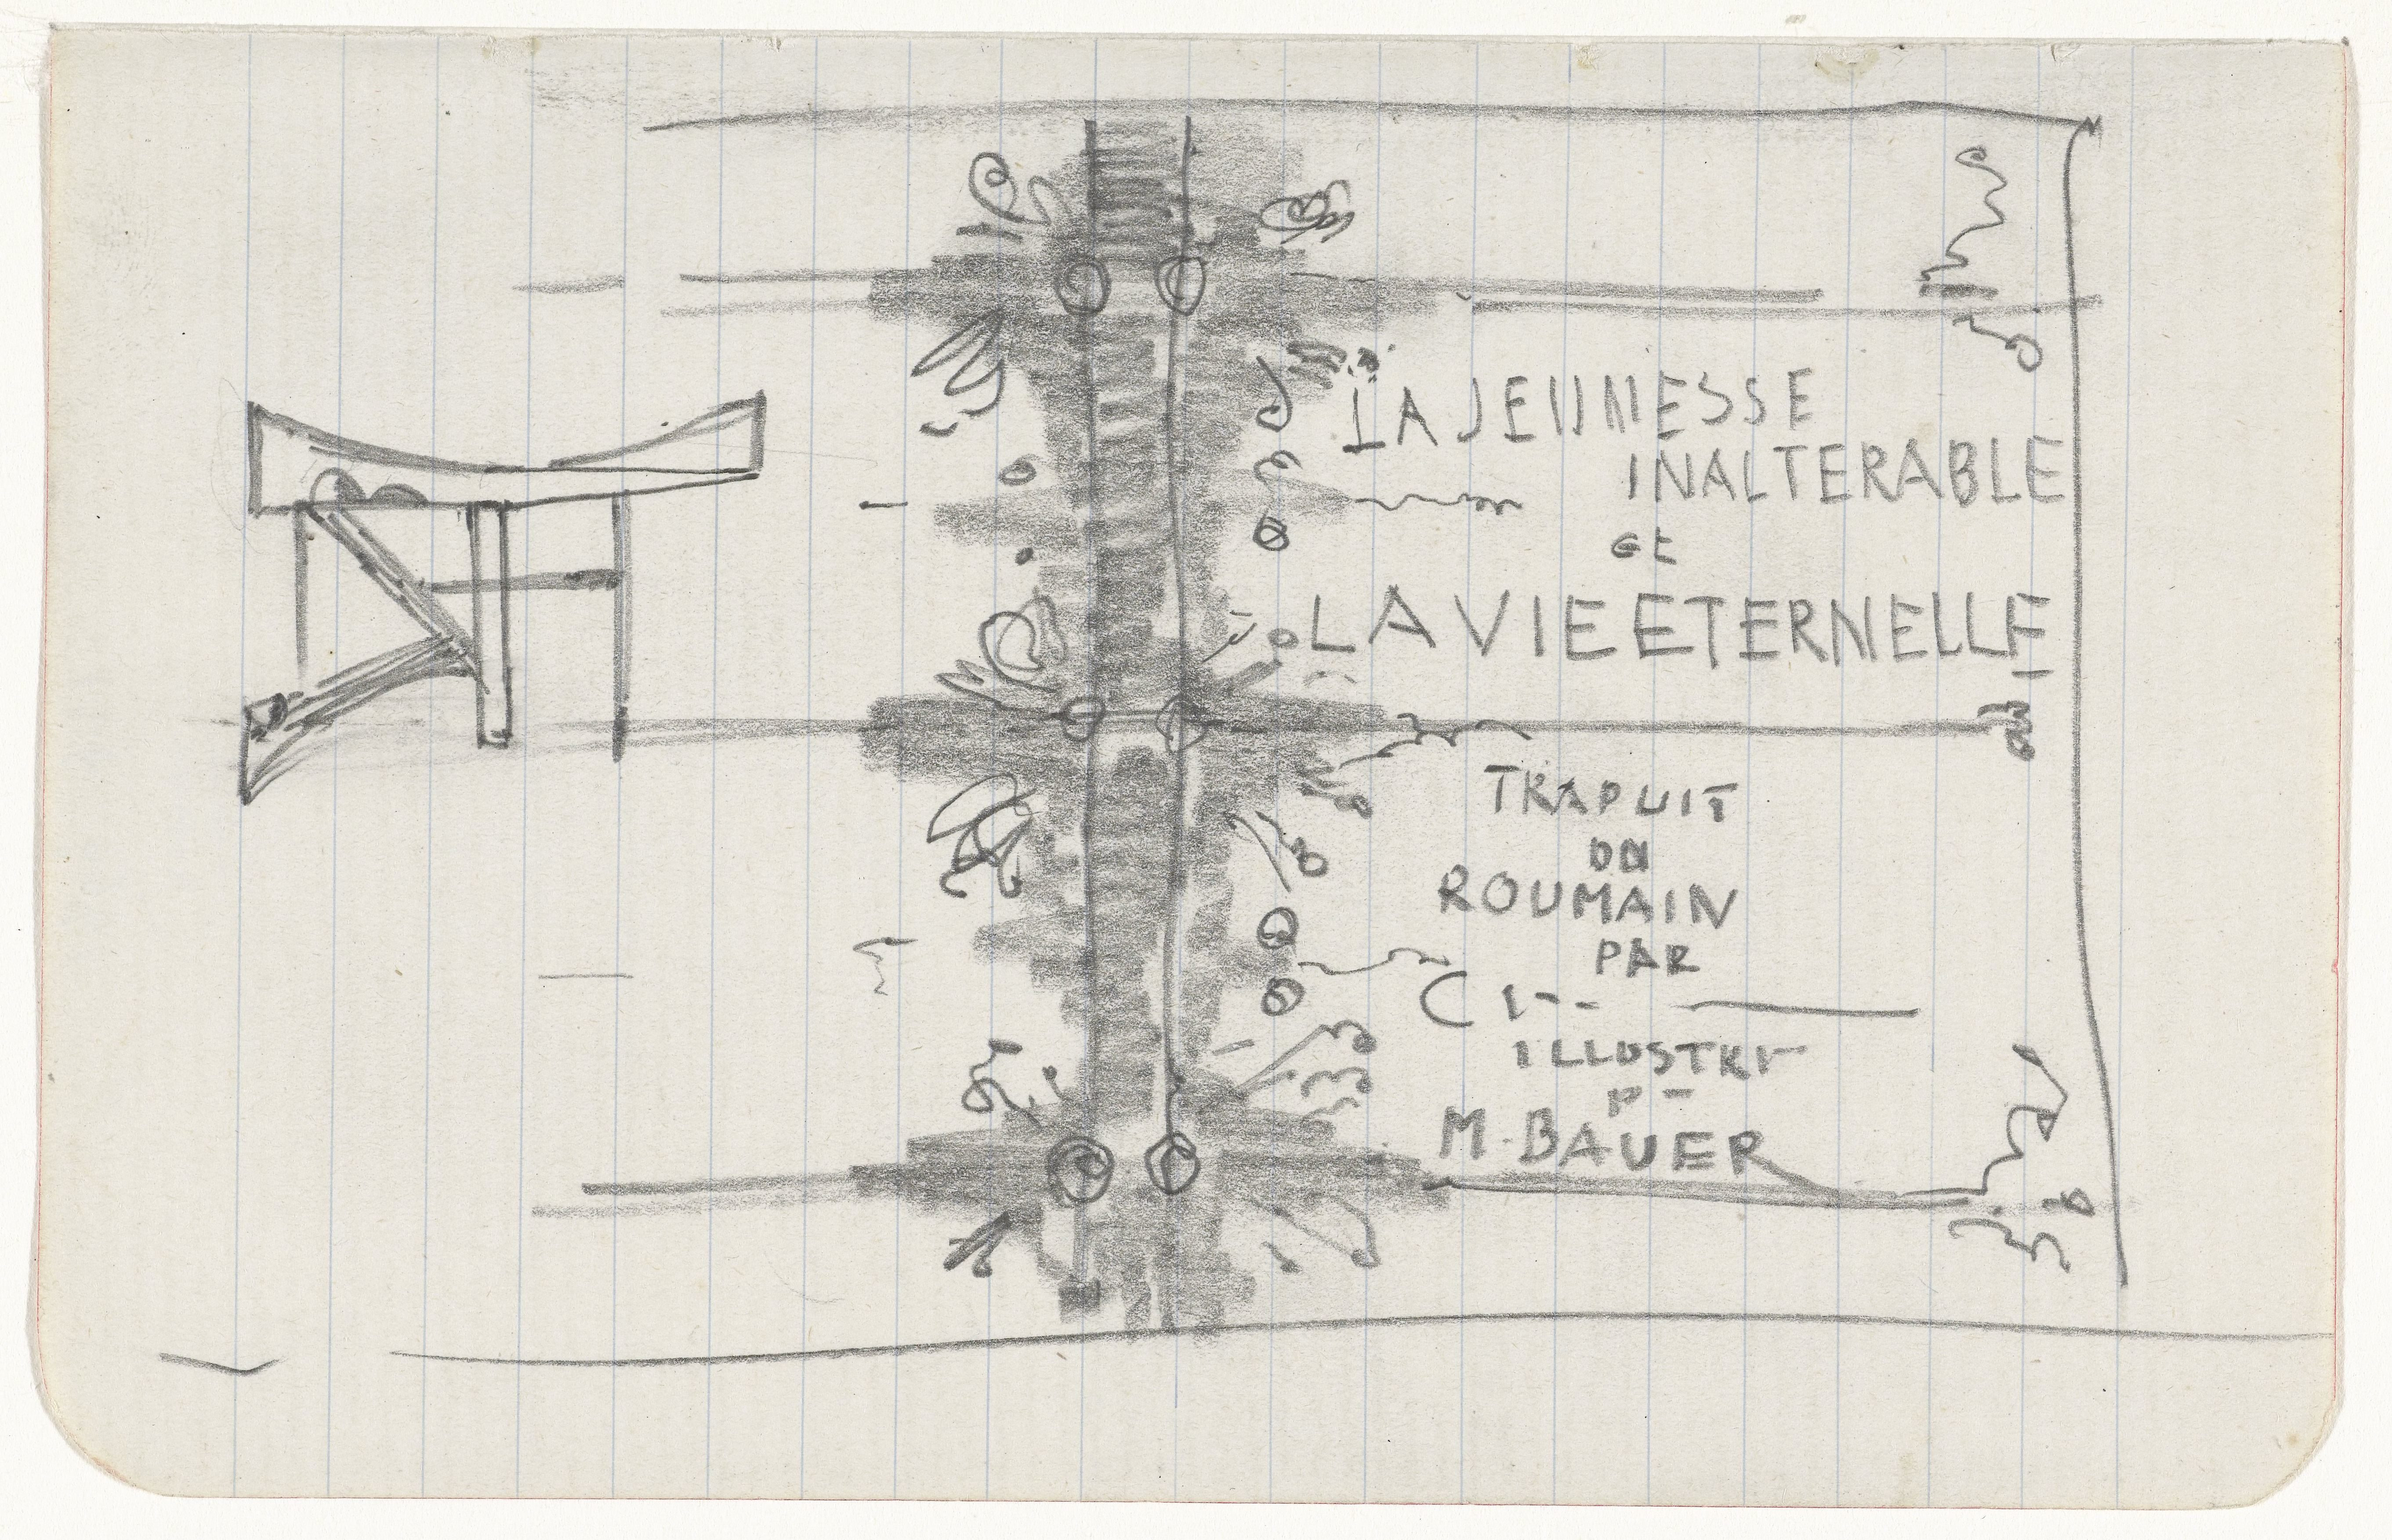 LA JEUNESSE
INALTERABLE
et
LA VIE ETERNELLE
TRADUIT
DU
ROUMAIN
PAR
C I--
ILLUSTRI-
P-
M. BAUER